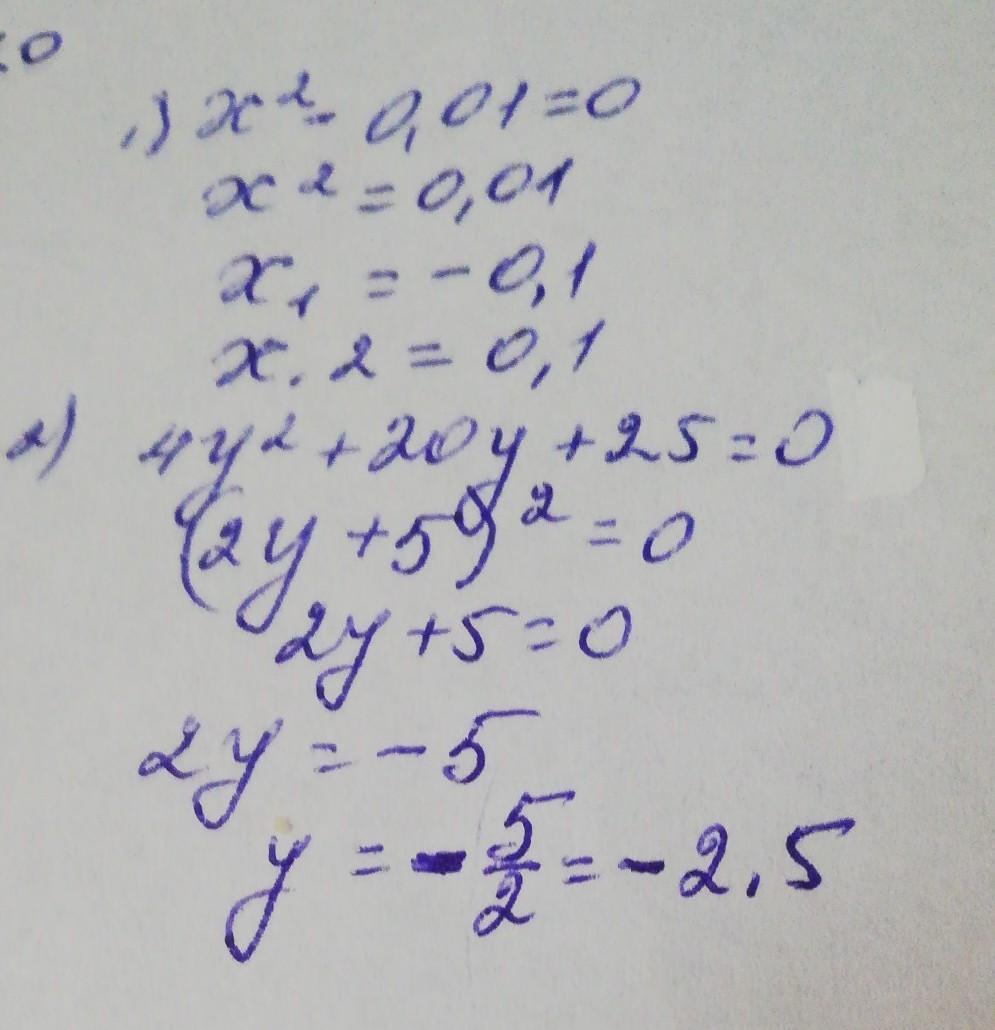 <0
1) x² - 0,01=0
x² = 0,01
x₁ = -0,1
x.2 = 0,1
2) 4y² + 20y + 25 = 0
(2y + 5)² = 0
2y + 5 = 0
2y = - 5
y = - 5/2 = - 2,5